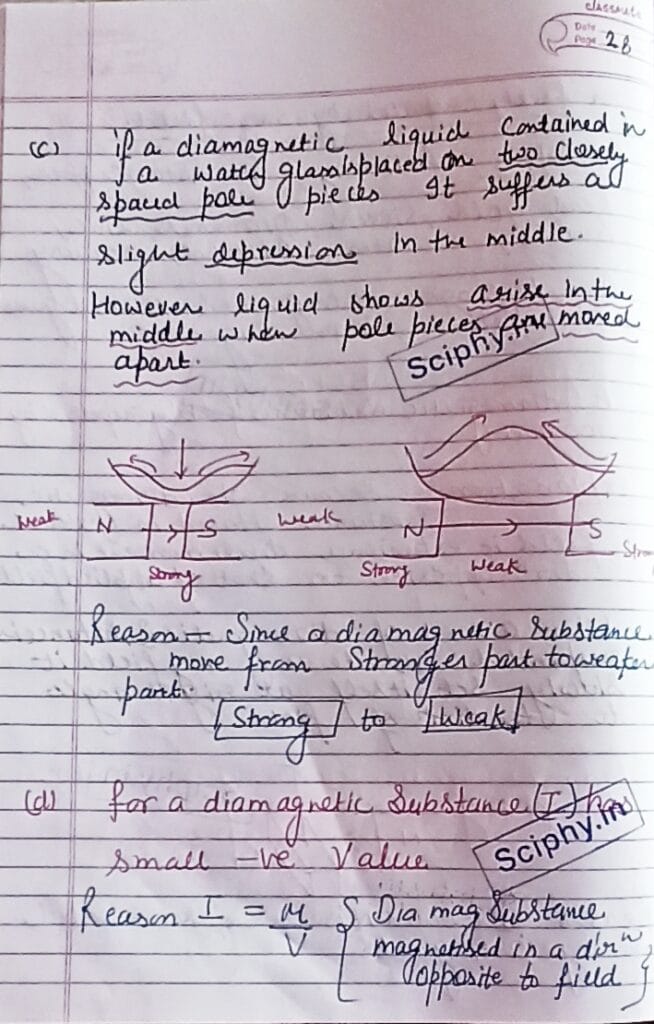 classmate
Date
Page 28
(c) if a diamagnetic liquid Contained in
a watch glass is placed on two closely
spaced pole pieces It suffers a
slight depression In the middle.
However liquid shows a rise In the
middle when pole pieces are moved
apart.
Sciphy.in
Weak N S Weak N S
Strong Strong Weak Stro
Reason - Since a diamagnetic Substance
move from Stronger part to weaker
part.
Strong to Weak
(d) for a diamagnetic Substance (I) has
small -ve Value
Sciphy.in
Reason I = M/V { Dia mag Substance
magnetised in a dirn
opposite to field }